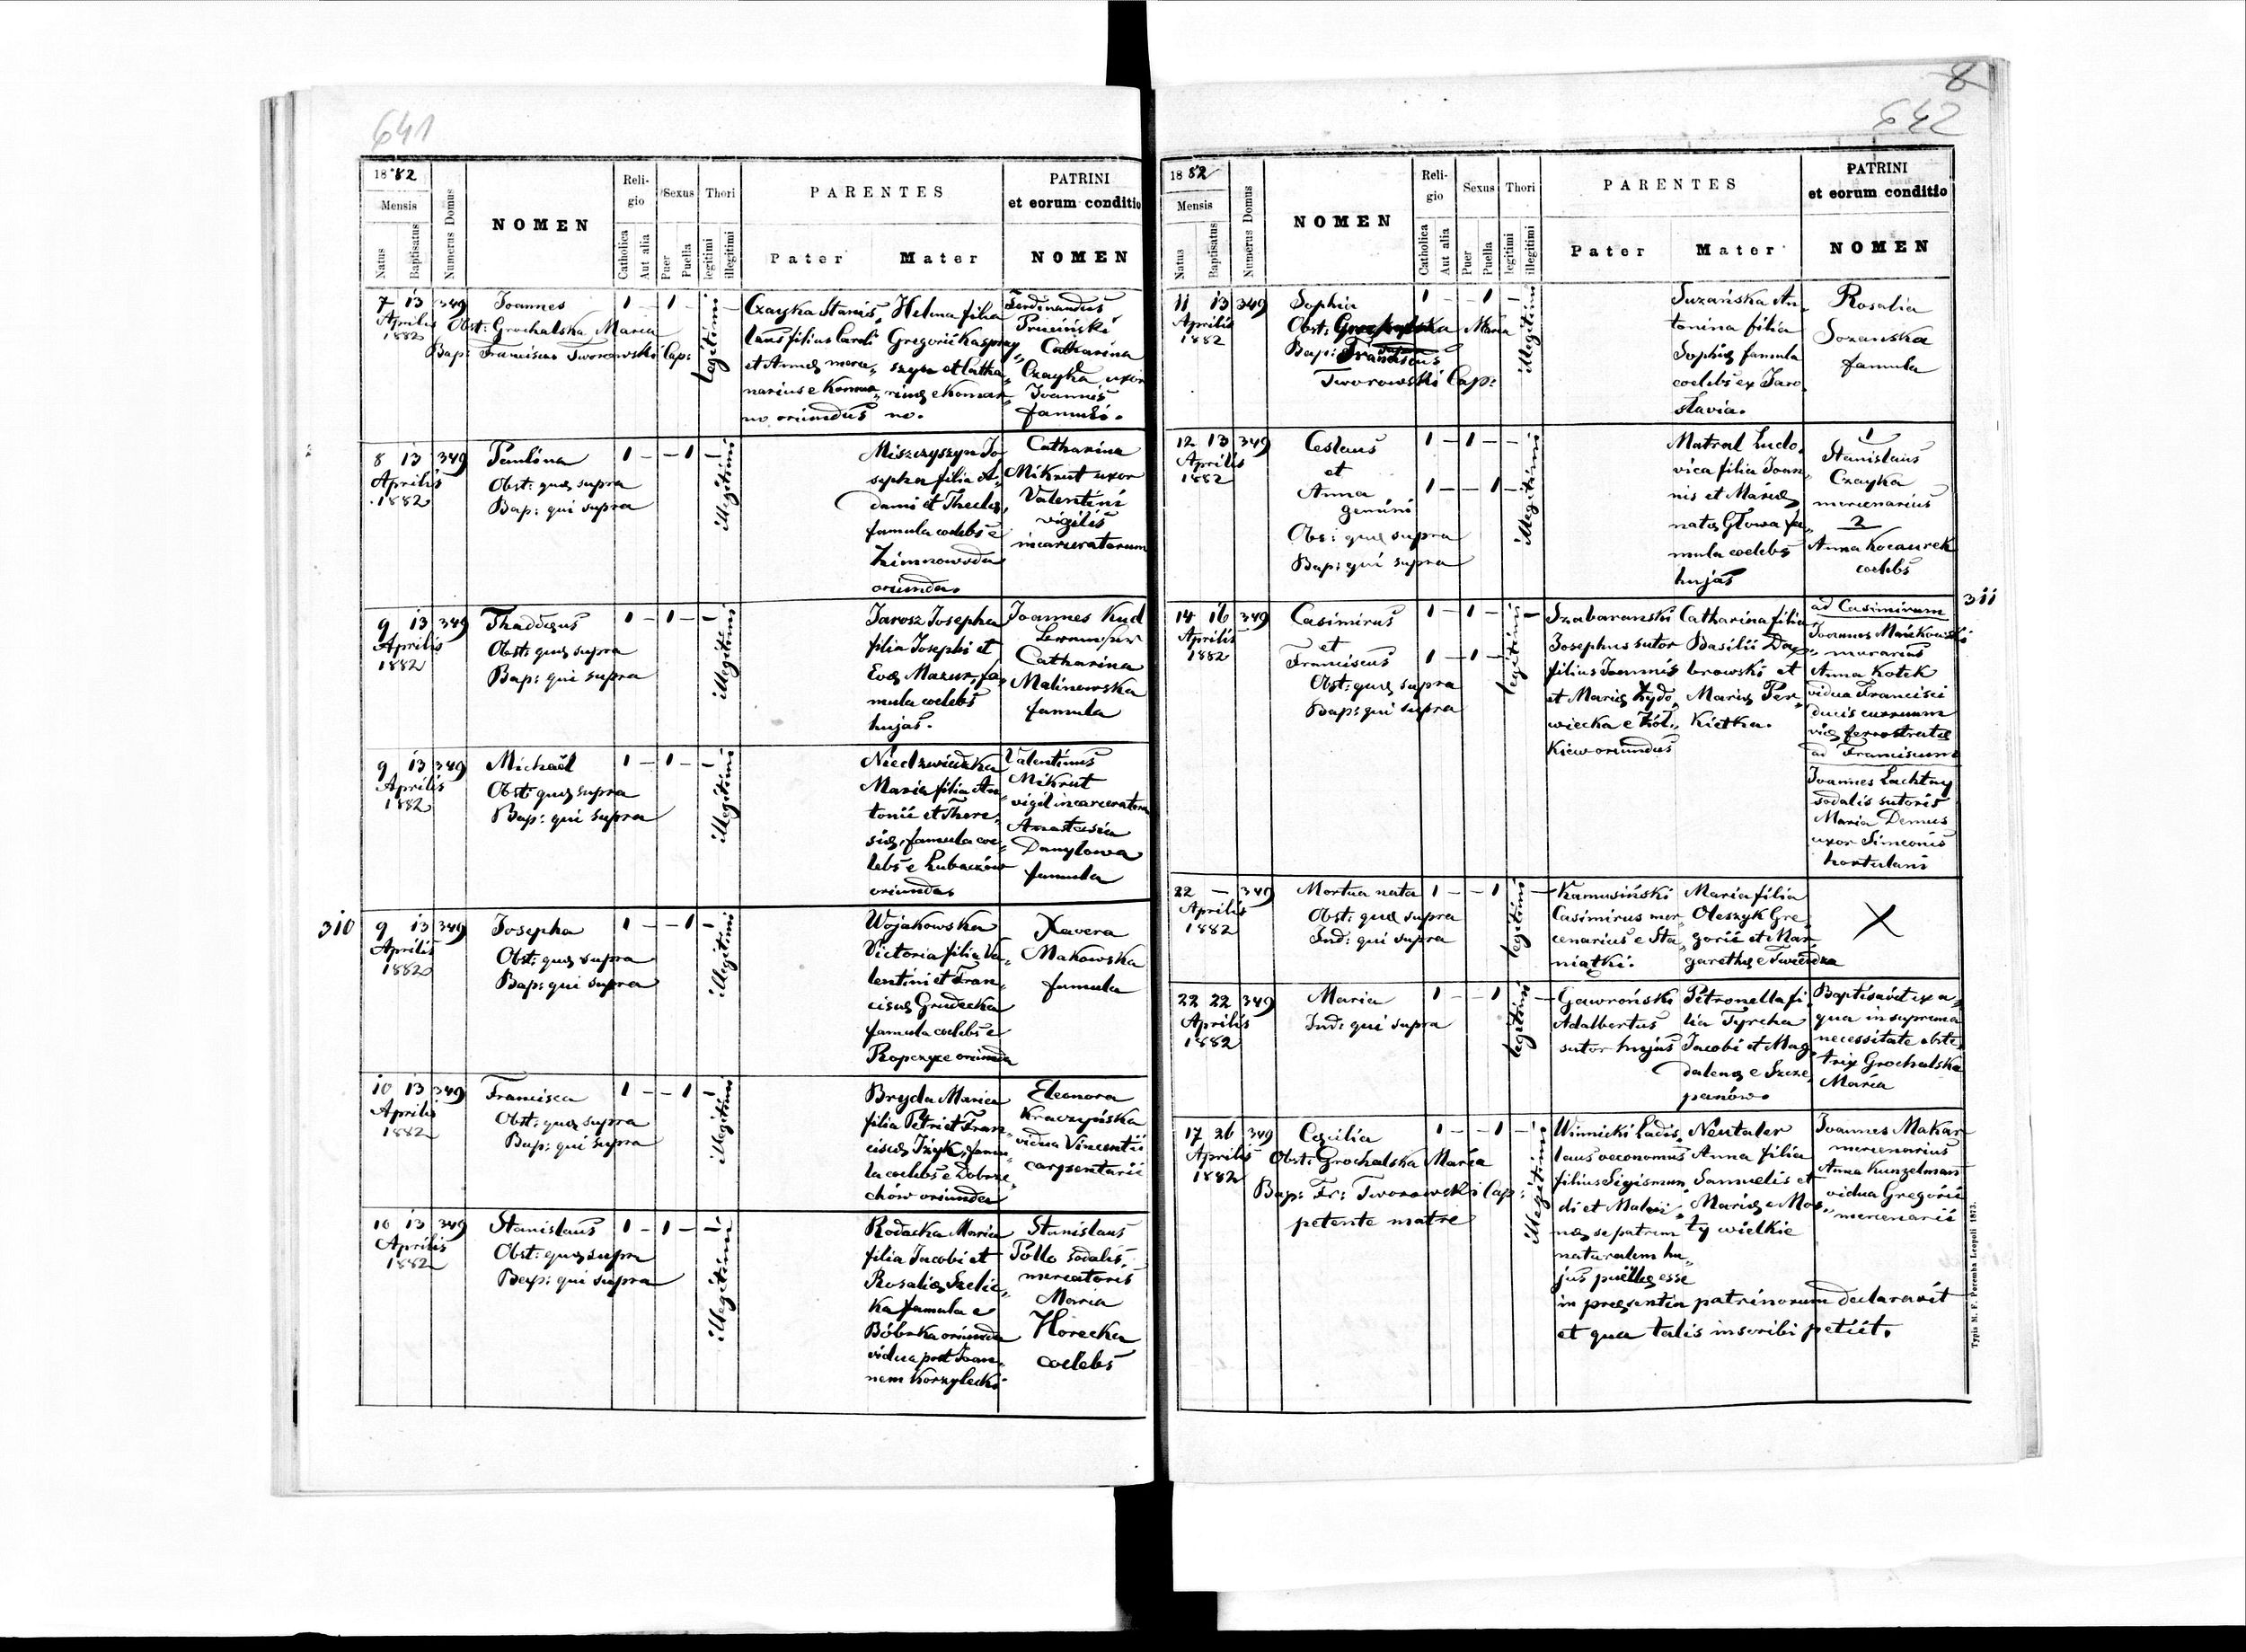 641
1882
Mensis
Natus
Baptisatus
Numerus Domus
NOMEN
Reli-
gio
Catholica
Aut alia
Sexus
Puer
Puella
Thori
legitimi
illegitimi
PARENTES
Pater
Mater
PATRINI
et eorum conditio
NOMEN
7 13 349
Aprilis
1882
Joannes
Obst: Grochalska Maria
Bap: Franciscus Tworowski Cap:
1 - 1 -
legitimi
Czayka Stanis„
laus filius Caroli
et Annæ merce„
narius e Komar„
no oriundus
Helena filia
Gregorii Kaspry„
szyn et Catha„
rinæ e Komar„
no.
Ferdinandus
Catharina
Czayka uxor
Joannis
famuli.
8 13 349
Aprilis
1882
Paulina
Obst: quæ supra
Bap: qui supra
1 - - 1
illegitimi
Miszczyszyn Jo„
sepha filia A„
dami et Theclæ,
famula coelebs e
Zimnowoda
oriunda.
Catharina
Mikrut uxor
Valentini
vigilis
incarceratorum
9 13 349
Aprilis
1882
Thaddæus
Obst: quæ supra
Bap: qui supra
1 - 1 -
illegitimi
Jarosz Josepha
filia Josephi et
Evæ Mazur, fa„
mula coelebs
hujas.
Joannes Kud
Catharina
Malinowska
famula
9 13 349
Aprilis
1882
Michaël
Obst: quæ supra
Bap: qui supra
1 - 1 -
illegitimi
Niedzwiedzka
Maria filia An„
tonii et There„
siæ, famula coe„
lebs e Lubaczów
oriunda
Valentinus
Mikrut
vigil incarceratorum
Anastasia
Danylowa
famula
310
9 13 349
Aprilis
1882
Josepha
Obst: quæ supra
Bap: qui supra
1 - - 1
illegitimi
Wojakowska
Victoria filia Va„
lentini et Fran„
ciscæ Grudecka
famula coelebs e
Ropczyce oriunda
Xavera
Makowska
famula
10 13 349
Aprilis
1882
Francisca
Obst: quæ supra
Bap: qui supra
1 - - 1
illegitimi
Bryda Maria
filia Petri et Fran„
ciscæ Izyk, famu„
la coelebs e Dobrze„
chów oriunda
Eleonora
Kraczyńska
vidua Vincentii
carpentarii
10 13 349
Aprilis
1882
Stanislaus
Obst: quæ supra
Bap: qui supra
1 - 1 -
illegitimi
Rodacka Maria
filia Jacobi et
Rosaliæ Szelic„
ka famula e
Bóbrka oriunda
vidua post Joan„
nem Korzylecki
Stanislaus
Pollo sodalis
mercatoris
Maria
Horecka
coelebs
8
642
1882
Mensis
Natus
Baptisatus
Numerus Domus
NOMEN
Reli-
gio
Catholica
Aut alia
Sexus
Puer
Puella
Thori
legitimi
illegitimi
PARENTES
Pater
Mater
PATRINI
et eorum conditio
NOMEN
11 13 349
Aprilis
1882
Sophia
Obst: Grochalska Maria
Bap: Franciscus
Tworowski Cap:
1 - - 1
illegitimi
Suzańska An„
tonina filia
Sophiæ famula
coelebs ex Jaro„
slavia.
Rosalia
Sozanska
famula
12 13 349
Aprilis
1882
Ceslaus
et
Anna
gemini
Obs: quæ supra
Bap: qui supra
1 - 1 -
1 - - 1
illegitimi
Matral Ludo„
vica filia Joan„
nis et Mariæ
natæ Głowa fa„
mula coelebs
hujas
1
Stanislaus
Czayka
mercenarius
2
Anna Kocaurek
coelebs
311
14 16 349
Aprilis
1882
Casimirus
et
Franciscus
Obst: quæ supra
Bap: qui supra
1 - 1 -
1 - 1 -
legitimi
Szabaranski
Josephus sutor
filius Joannis
et Mariæ Żydo„
wiecka e Żół„
kiew oriundus
Catharina filia
Basilii Dą„
browski et
Mariæ Per„
kietka.
ad Casimirum
Joannes Mańkowski
murarius
Anna Kotek
vidua Francisci
ducis curruum
viæ ferrostratæ
ad Franciscum
Joannes Lachtny
sodalis sutoris
Maria Demus
uxor Simeonis
hortulani
22 - 349
Aprilis
1882
Mortua nata
Obst: quæ supra
Ind: qui supra
1 - - 1
legitimi
Kamusiński
Casimirus mer„
cenarius e Sta„
niątki.
Maria filia
Oleszyk Gre„
gorii et Mar„
garethæ e Twierdza
X
22 22 349
Aprilis
1882
Maria
Ind: qui supra
1 - - 1
legitimi
Gawroński
Adalbertus
sutor hujas
Petronella fi„
lia Tyrcha
Jacobi et Mag„
dalenæ e Szcze„
panów.
Baptisavit ex a„
qua in suprema
necessitate obste„
trix Grochalska
Maria
17 26 349
Aprilis
1882
Cæcilia
Obst: Grochalska Maria
Bap: Fr: Tworowski Cap:
petente matre
1 - - 1
illegitimi
Winnicki Ladis„
laus oeconomus
filius Sigismun„
di et Malvi„
næ se patrem
naturalem hu„
jus puellæ esse
in præsentia patrinorum declaravit
et qua talis inscribi petiit.
Neutaler
Anna filia
Samuelis et
Mariæ e Mos„
ty wielkie
Joannes Makar
mercenarius
Anna Kunzelman
vidua Gregorii
mercenarii
Typis M. F. Poremba Leopoli 1873.